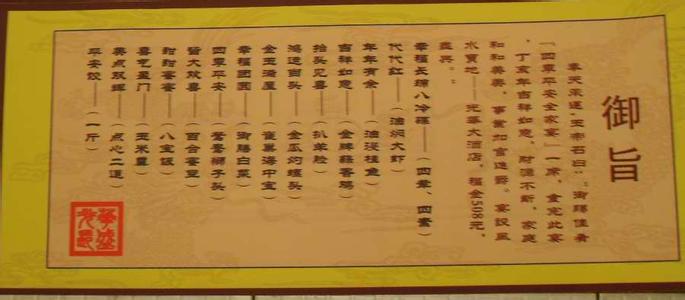 御旨
奉天承运,玉帝召曰:"御赐佳肴
"四季平安全家宴"一席,食完此宴
,丁亥年吉祥如意,财源不断,家庭
和和美美,事业加官进爵。宴设风
水宝地——光华大酒店,福金508元。
盛典。
幸福长绵八冷碟——(四荤、四素)
代代红——(油焖大虾)
年年有余——(油浸桂鱼)
吉祥如意——(金牌蒜香鸭)
抬头见喜——(扒羊脸)
鸿运当头——(金瓜灼螺头)
金玉满屋——(雀巢海中宝)
幸福团圆——(御膳白菜)
四季平安——(鸳鸯狮子头)
皆大欢喜——(百合蜜豆)
甜甜蜜蜜——(八宝饭)
喜气盈门——(玉米羹)
美点双辉——(点心二道)
平安饺——(一斤)